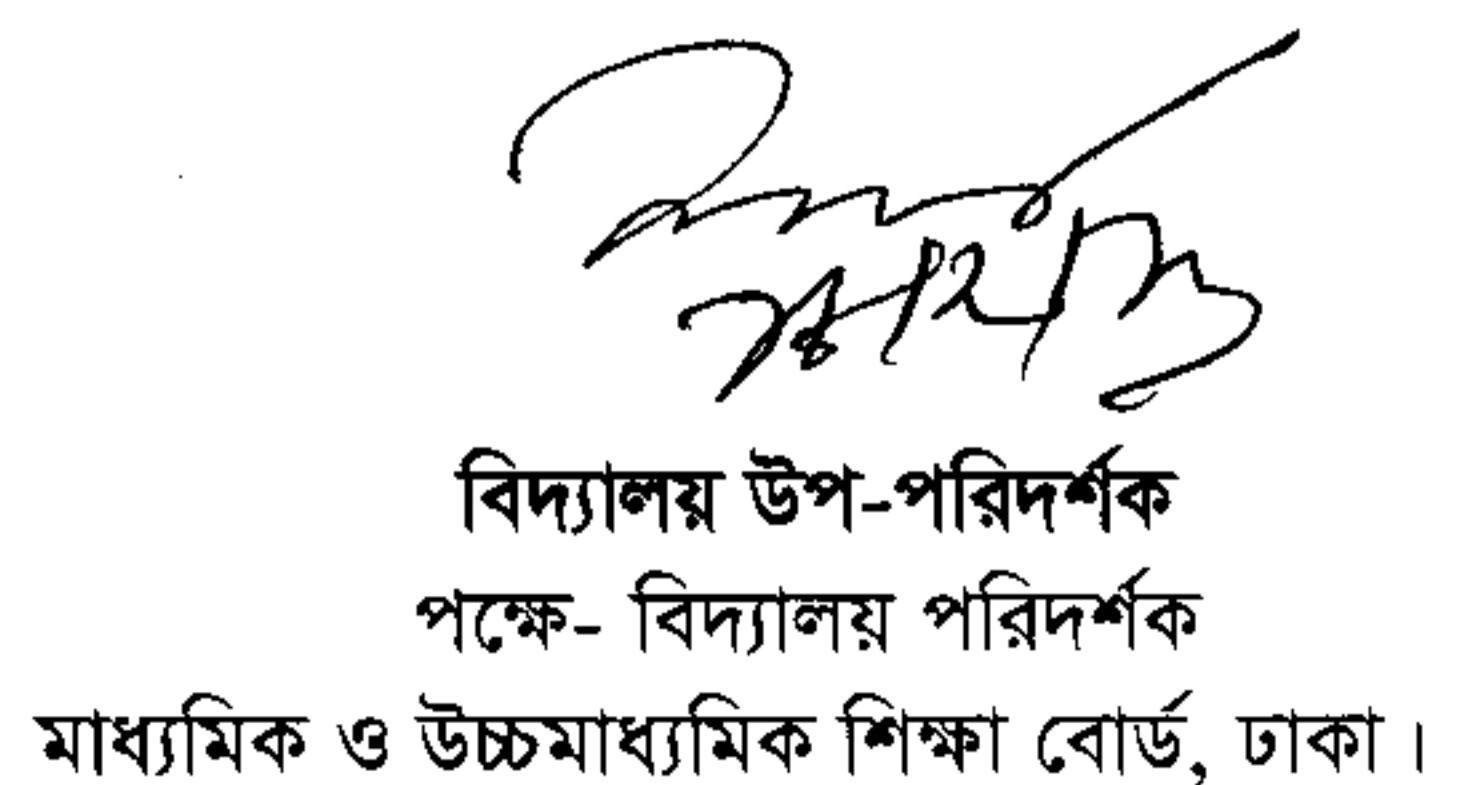 বিদ্যালয় উপ-পরিদর্শক
পক্ষে- বিদ্যালয় পরিদর্শক
মাধ্যমিক ও উচ্চমাধ্যমিক শিক্ষা বোর্ড, ঢাকা।